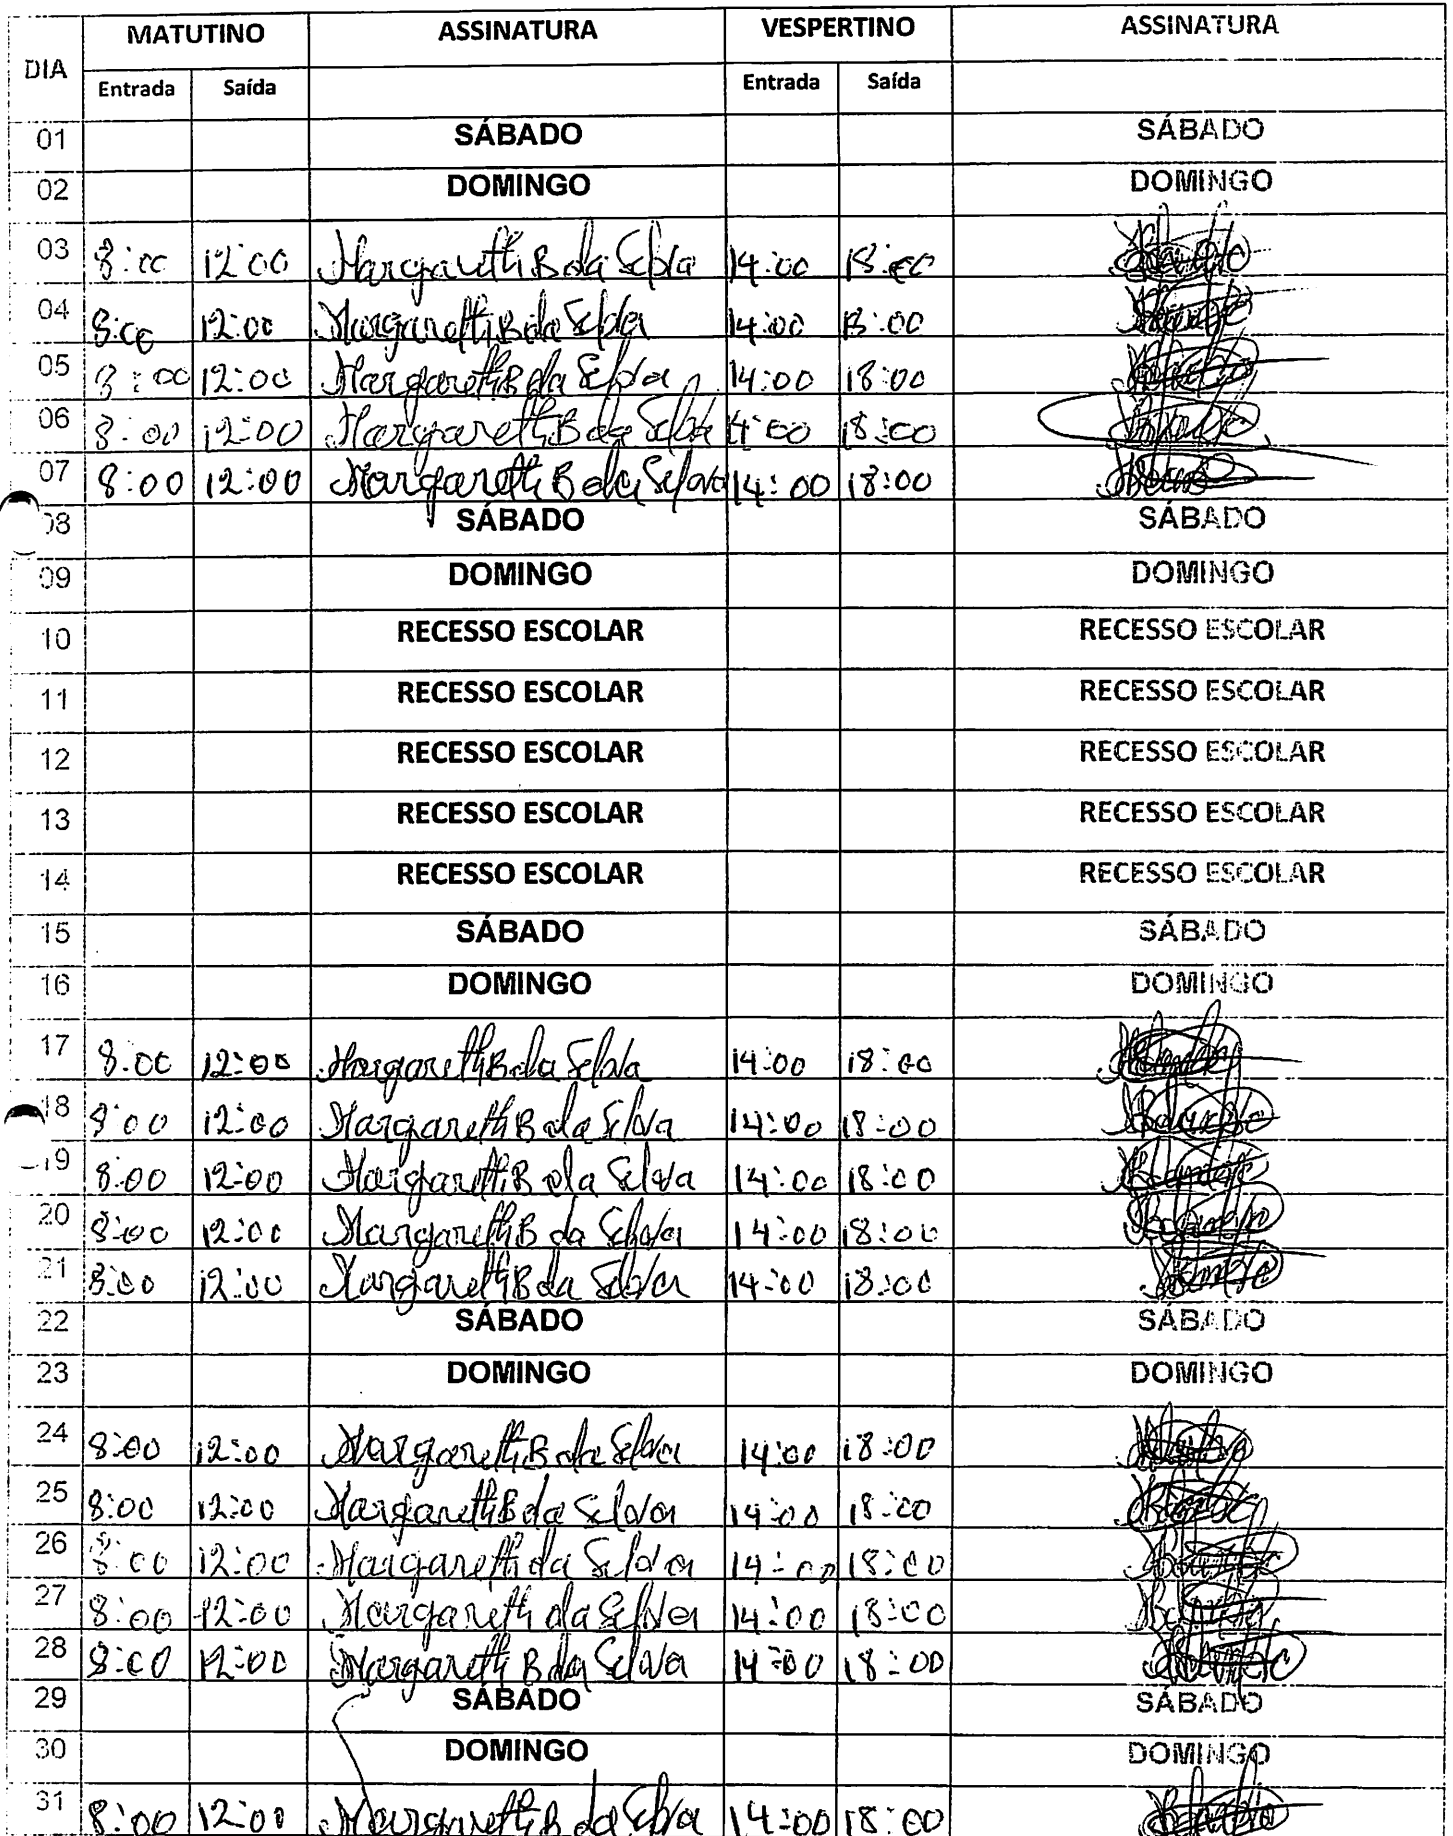 DIA MATUTINO ASSINATURA VESPERTINO ASSINATURA
Entrada Saída Entrada Saída
01 SÁBADO SÁBADO
02 DOMINGO DOMINGO
03 8:00 12:00 Margareth B da Silva 14:00 18:00
04 8:00 12:00 Margareth B da Silva 14:00 18:00
05 8:00 12:00 Margareth B da Silva 14:00 18:00
06 8:00 12:00 Margareth B da Silva 14:00 18:00
07 8:00 12:00 Margareth B da Silva 14:00 18:00
08 SÁBADO SÁBADO
09 DOMINGO DOMINGO
10 RECESSO ESCOLAR RECESSO ESCOLAR
11 RECESSO ESCOLAR RECESSO ESCOLAR
12 RECESSO ESCOLAR RECESSO ESCOLAR
13 RECESSO ESCOLAR RECESSO ESCOLAR
14 RECESSO ESCOLAR RECESSO ESCOLAR
15 SÁBADO SÁBADO
16 DOMINGO DOMINGO
17 8:00 12:00 Margareth B da Silva 14:00 18:00
18 8:00 12:00 Margareth B da Silva 14:00 18:00
19 8:00 12:00 Margareth B da Silva 14:00 18:00
20 8:00 12:00 Margareth B da Silva 14:00 18:00
21 8:00 12:00 Margareth B da Silva 14:00 18:00
22 SÁBADO SÁBADO
23 DOMINGO DOMINGO
24 8:00 12:00 Margareth B da Silva 14:00 18:00
25 8:00 12:00 Margareth B da Silva 14:00 18:00
26 8:00 12:00 Margareth da Silva 14:00 18:00
27 8:00 12:00 Margareth da Silva 14:00 18:00
28 8:00 12:00 Margareth B da Silva 14:00 18:00
29 SÁBADO SÁBADO
30 DOMINGO DOMINGO
31 8:00 12:00 Margareth B da Silva 14:00 18:00